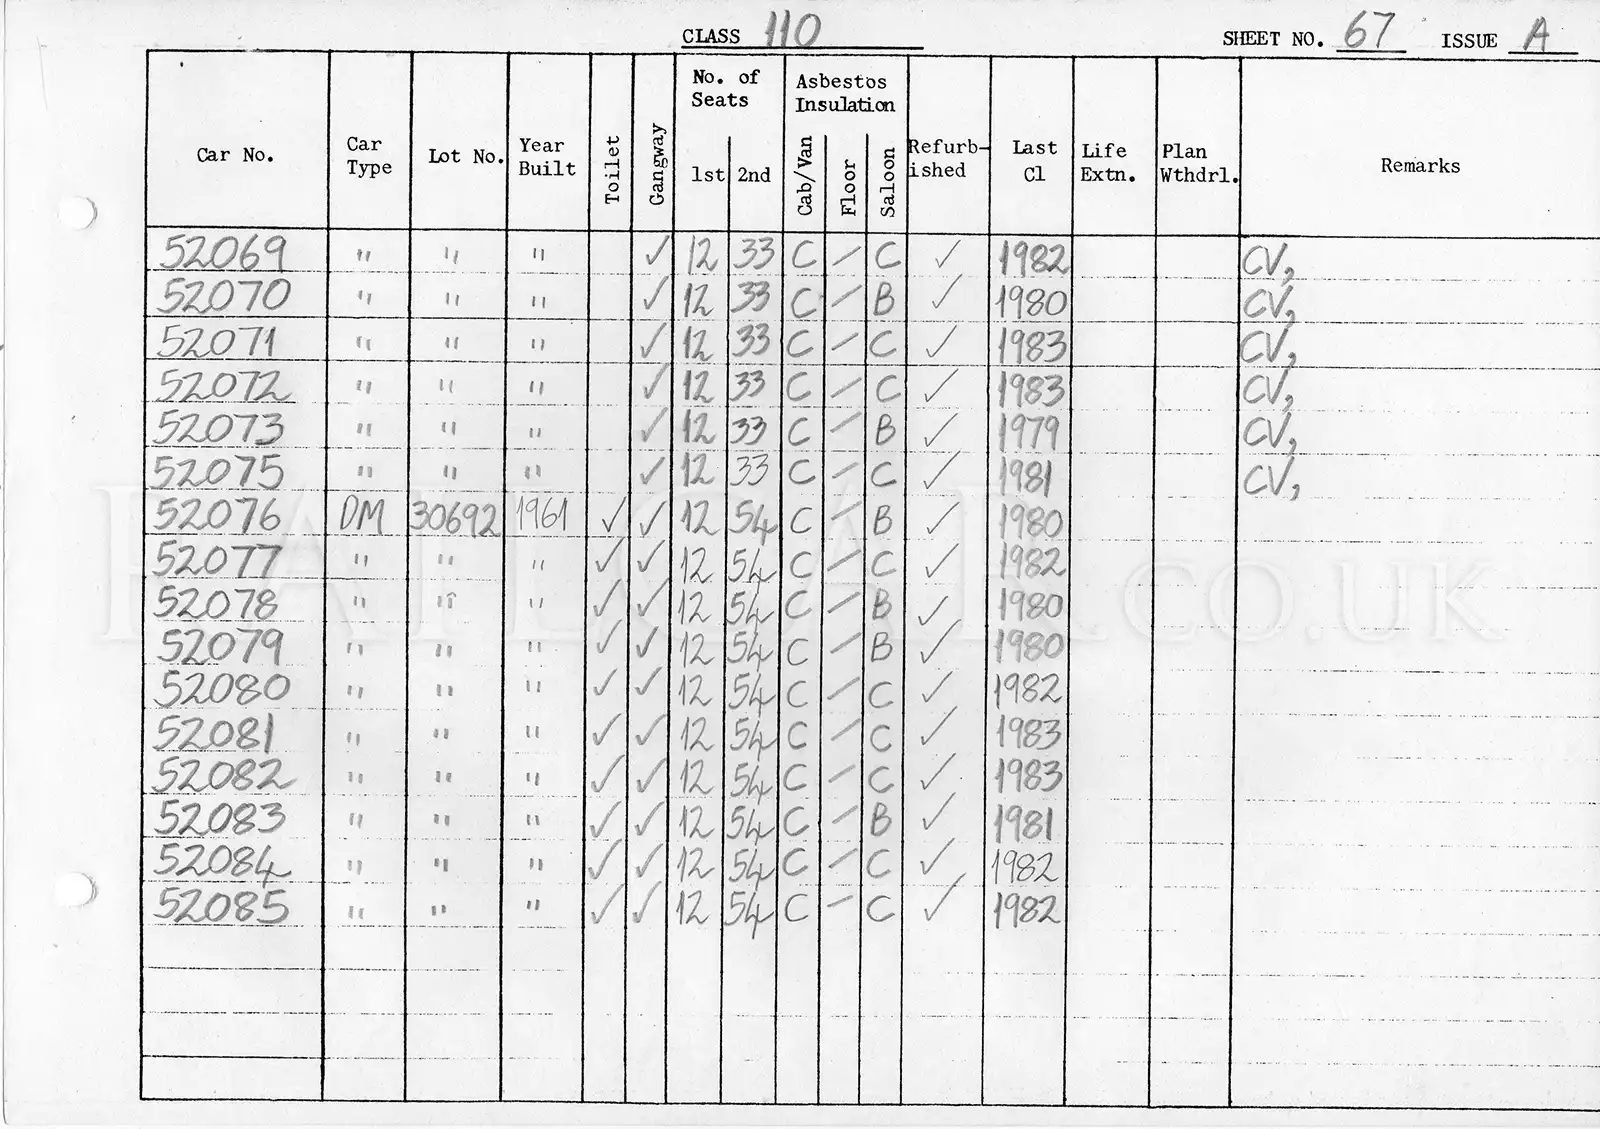 CLASS 110 SHEET NO. 67 ISSUE A
Car No. Car Type Lot No. Year Built Toilet Gangway No. of Seats 1st 2nd Asbestos Insulation Cab/Van Floor Saloon Refurb-ished Last Cl Life Extn. Plan Wthdrl. Remarks
52069 " " " ✓ 12 33 C / C ✓ 1982 CV,
52070 " " " ✓ 12 33 C / B ✓ 1980 CV,
52071 " " " ✓ 12 33 C / C ✓ 1983 CV,
52072 " " " ✓ 12 33 C / C ✓ 1983 CV,
52073 " " " ✓ 12 33 C / B ✓ 1979 CV,
52075 " " " ✓ 12 33 C / C ✓ 1981 CV,
52076 DM 30692 1961 ✓ ✓ 12 54 C / B ✓ 1980
52077 " " " ✓ ✓ 12 54 C / C ✓ 1982
52078 " " " ✓ ✓ 12 54 C / B ✓ 1980
52079 " " " ✓ ✓ 12 54 C / B ✓ 1980
52080 " " " ✓ ✓ 12 54 C / C ✓ 1982
52081 " " " ✓ ✓ 12 54 C / C ✓ 1983
52082 " " " ✓ ✓ 12 54 C / C ✓ 1983
52083 " " " ✓ ✓ 12 54 C / B ✓ 1981
52084 " " " ✓ ✓ 12 54 C / C ✓ 1982
52085 " " " ✓ ✓ 12 54 C / C ✓ 1982
RAILCAR.CO.UK